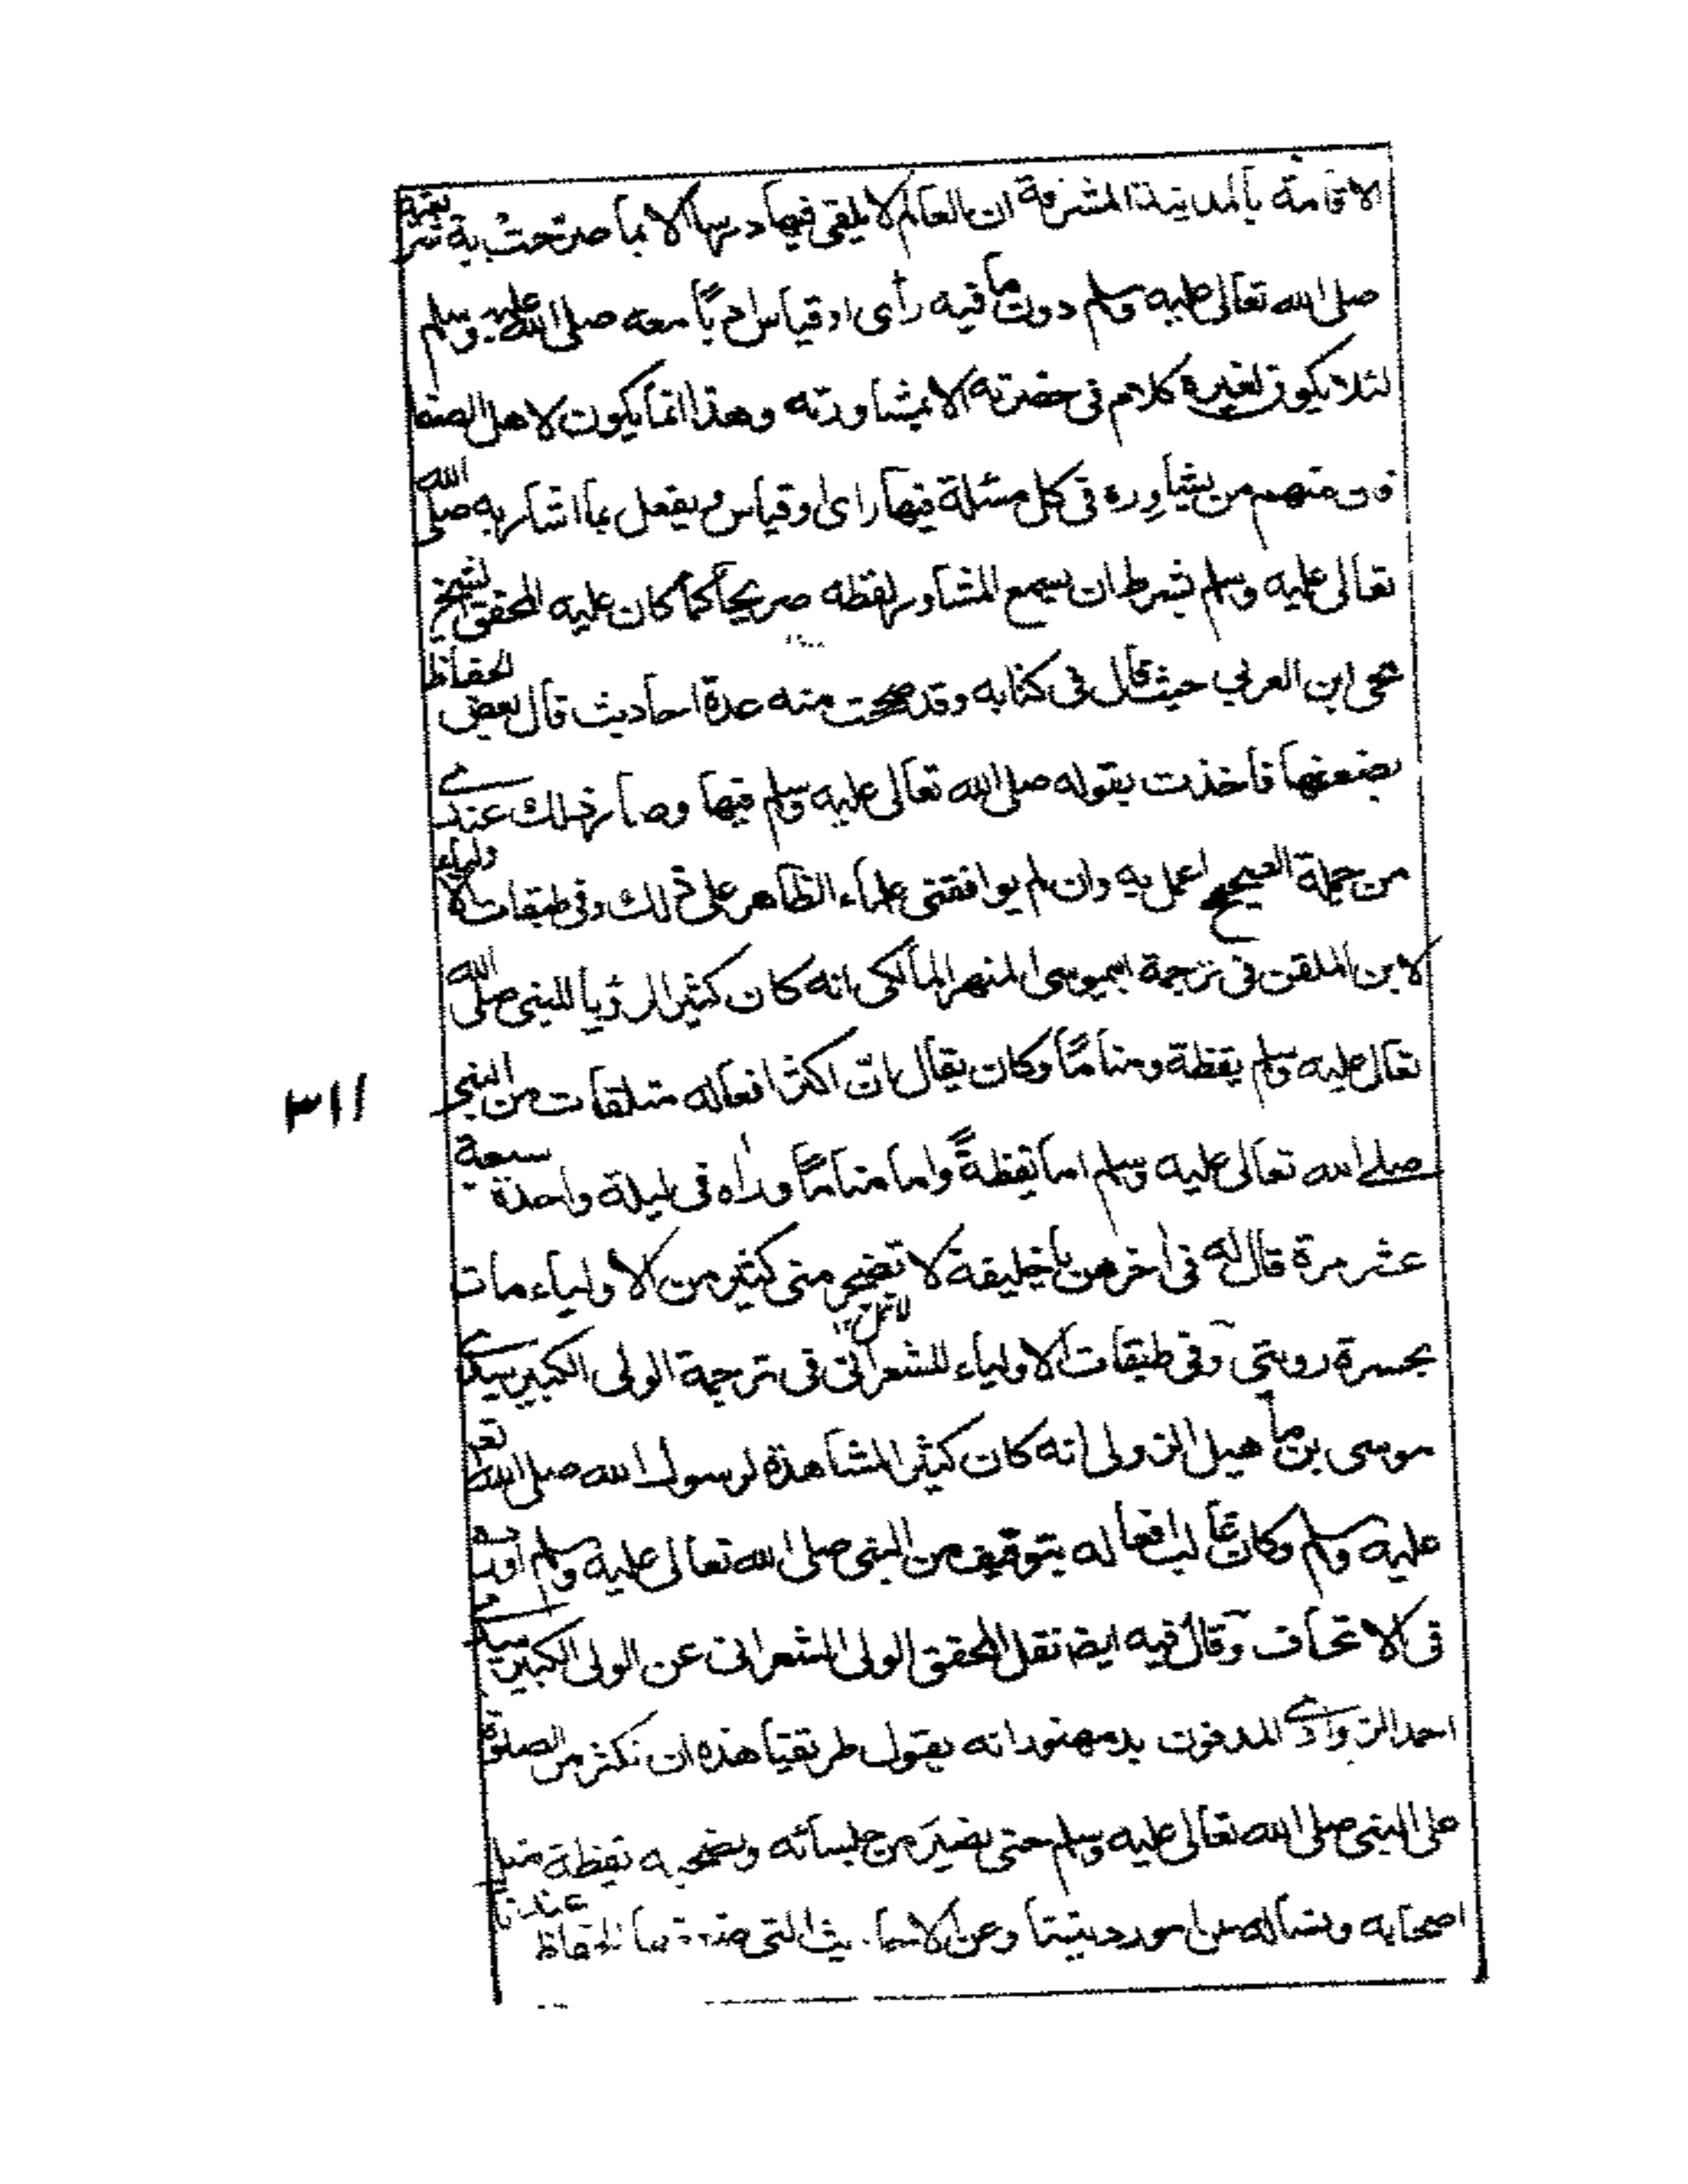 الاقامة بالمدينة المشرفة ان العالم لا يلقى فيها درسها الا بما صرحت به شريعته
صلى الله تعالى عليه وسلم دون ما فيه رأى او قياس ادبًا معه صلى الله عليه وسلم
لئلا يكون لغيره كلام فى حضرته الا بمشاورته وهذا انما يكون لاهل الصفا
فان منهم من يشاوره فى كل مسئلة فيها راى او قياس ويفعل بما اشار به صلى الله
تعالى عليه وسلم بشرط ان يسمع المشاور لفظه صريحًا كما كان عليه المحقق الشيخ
محى ابن العربي حيث قال فى كتابه وقد صححت منه عدة احاديث قال بعض الحفاظ
بضعفها فاخذت بقوله صلى الله تعالى عليه وسلم فيها وصار ذلك عندى
من جملة الصحيح اعمل به وان لم يوافقنى علماء الظاهر على ذلك وفى طبقات الاولياء
لابن الملقن فى ترجمة موسى المنهر المالكى انه كان كثير الرؤيا للنبى صلى الله
تعالى عليه وسلم يقظة ومنامًا وكان يقال انّ اكثر افعاله متلقات من النبى
صلے الله تعالى عليه وسلم اما يقظةً واما منامًا ورأه فى ليلة واحدة سبعة
عشر مرة قال له فى اخرهن يا خليفة لا تضجر منى كثير من الاولياء مات
بحسرة رويتى وفى طبقات الاولياء للشعرانى فى ترجمة الولى الكبير سيدى
موسى بن ماهيل الزولى انه كان كثير المشاهدة لرسول الله صلى الله تعالى
عليه وسلم وكان غالب افعاله بتوقيف من النبى صلى الله تعالى عليه وسلم اورده
فى الاتحاف وقال فيه ايضا نقل المحقق الولى الشعرانى عن الولى الكبير سيدى
احمد الزواوى المدفون بدمهنور انه يقول طريقتنا هذه ان نكثر من الصلوة
على النبى صلى الله تعالى عليه وسلم حتى نصير من جلسائه ونصحبه يقظة مثل
اصحابه ونساله عن امور ديننا وعن الاحاديث التى ضعفها الحفاظ عندنا
٣١١